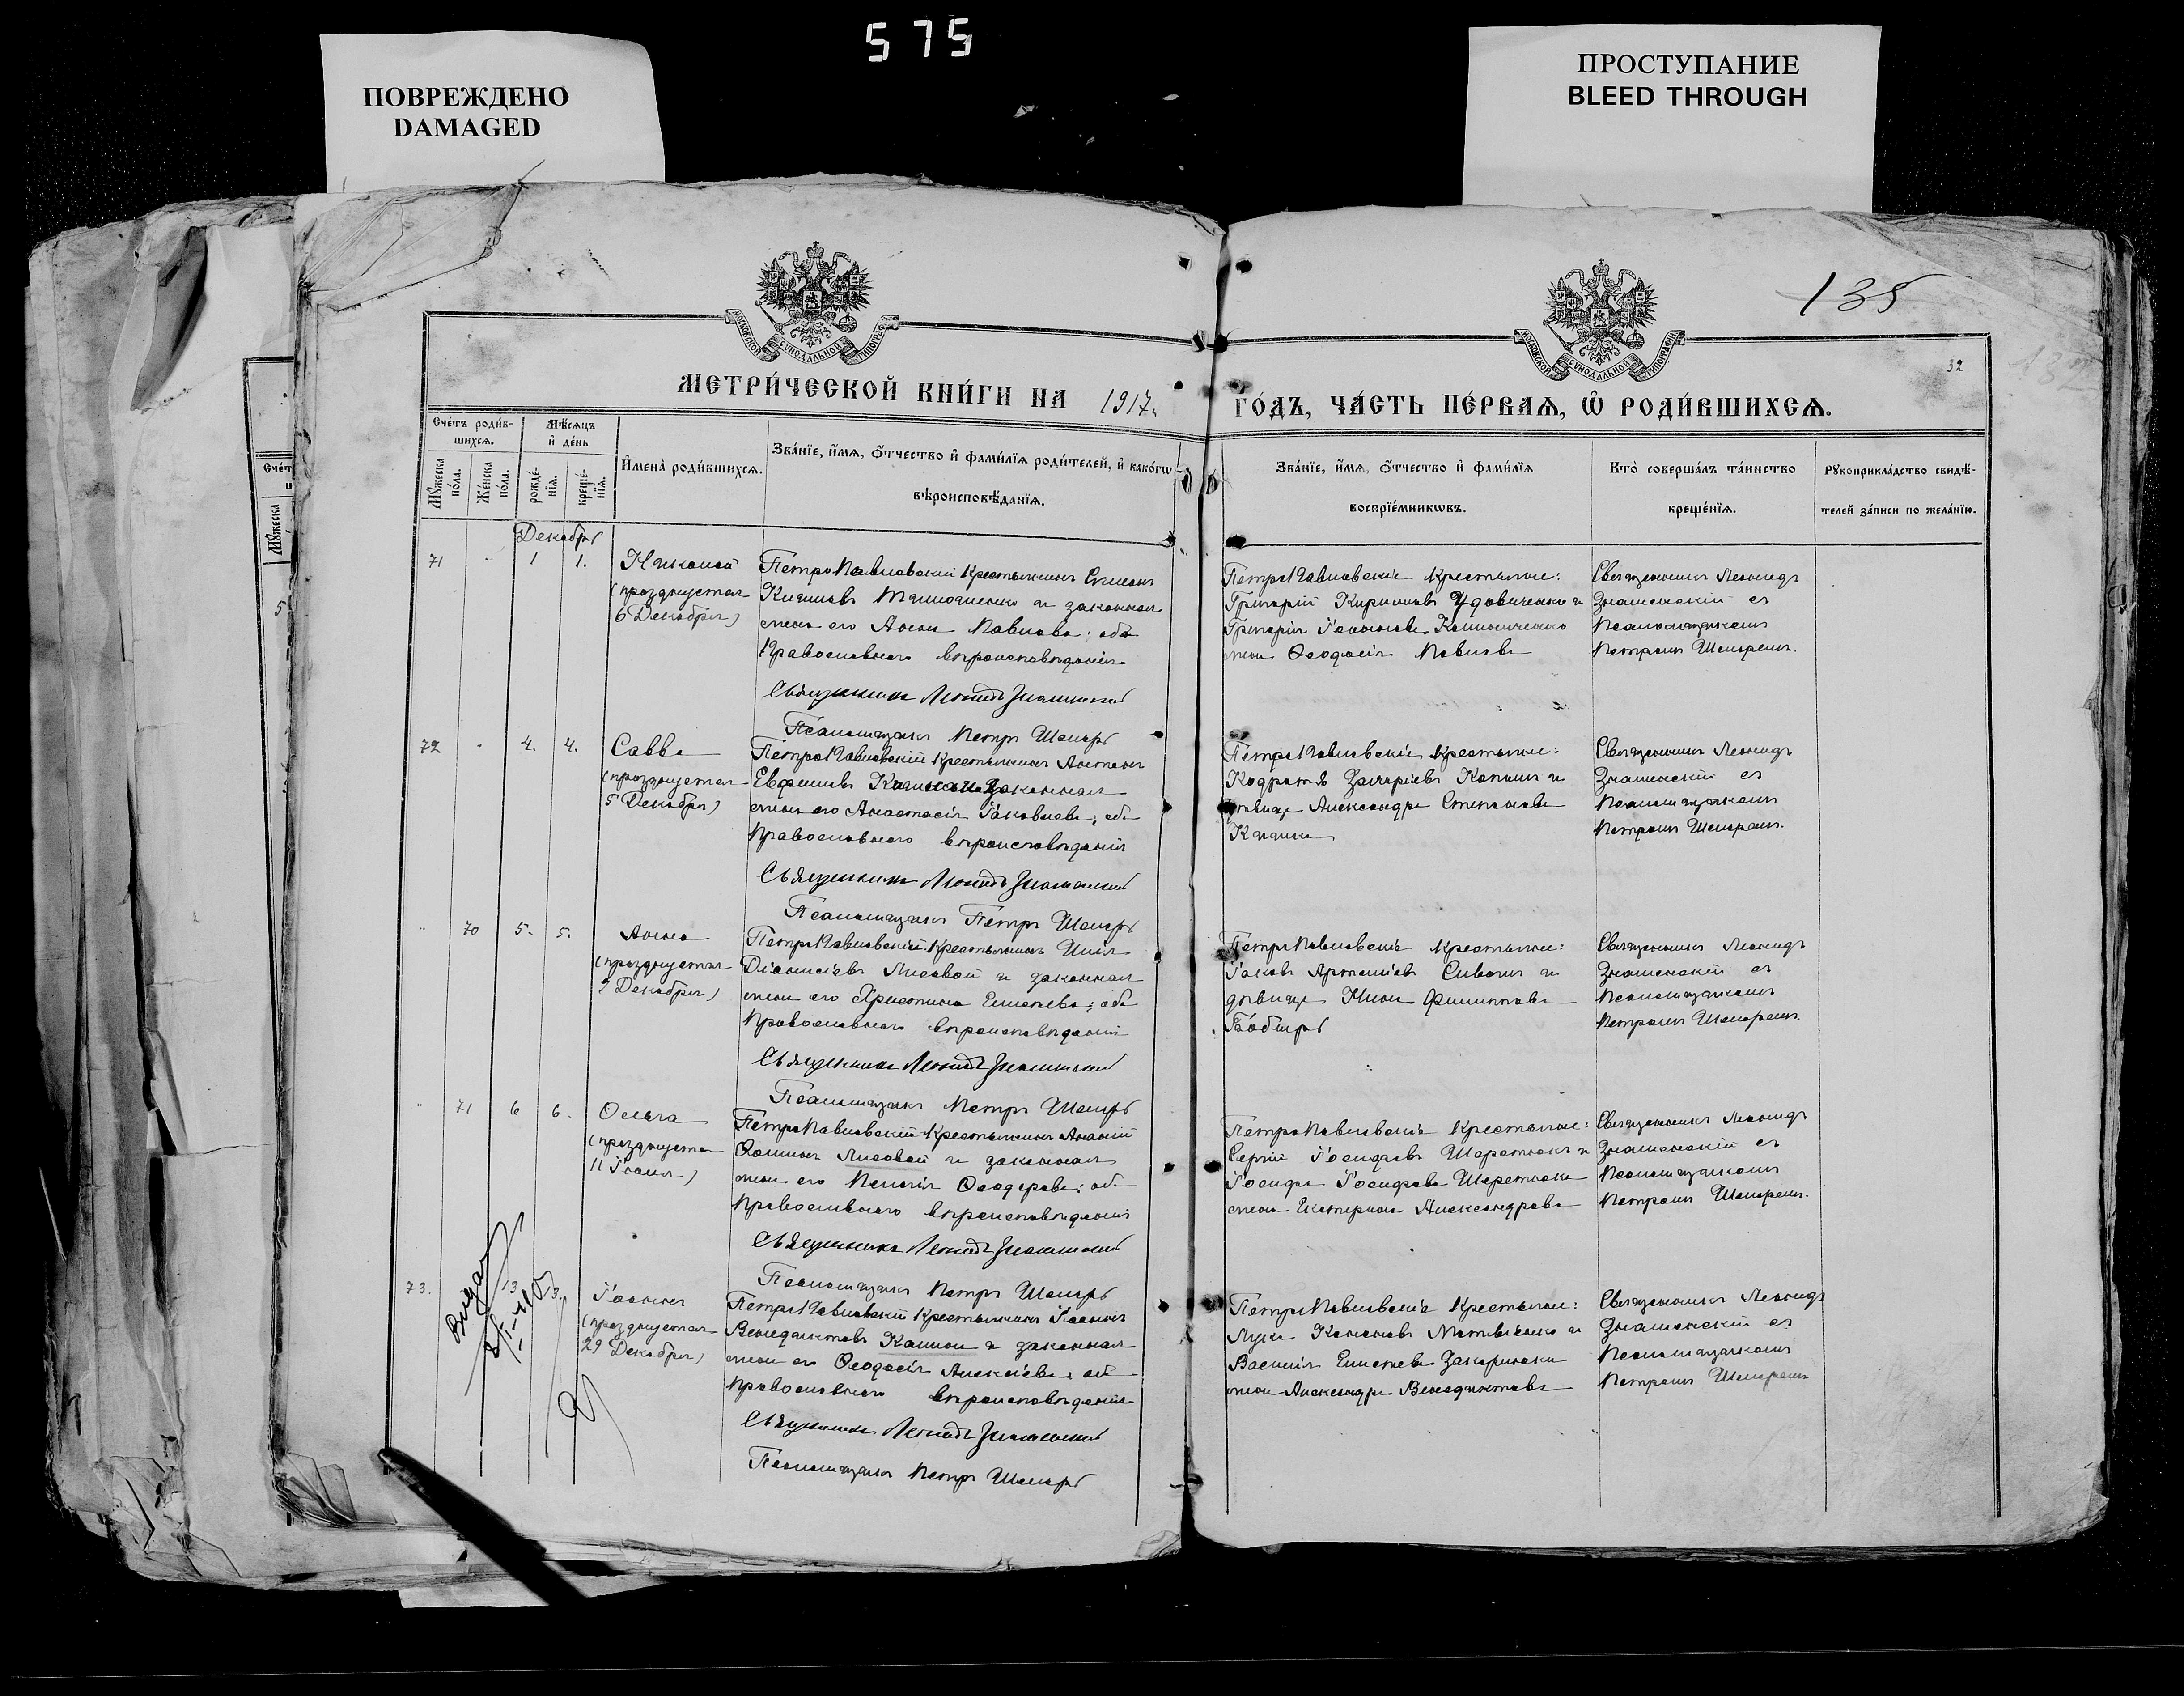 575
ПОВРЕЖДЕНО
DAMAGED
ПРОСТУПАНИЕ
BLEED THROUGH
135
32
МОСКОВСКОЙ СѴНОДАЛЬНОЙ ТИПОГРАФІИ
МОСКОВСКОЙ СѴНОДАЛЬНОЙ ТИПОГРАФІИ
МЕТРИ́ЧЕСКОЙ КНИ́ГИ НА 1917.
ГО́ДЪ, ЧА́СТЬ ПЕ́РВАѦ, Ѽ РОДИ́ВШИХСѦ.
Сче́тъ роди́в-
шихсѧ.
Мѣ́сѧцъ
и҆ де́нь
Мꙋ́жеска
по́ла.
Же́нска
по́ла.
рожде́-
нїѧ.
креще́-
нїѧ.
И҆мена̀ роди́вшихсѧ.
Зва́нїе, и҆́мѧ, ѻ҆́тчество и҆ фами́лїѧ роди́телей, и҆ како́гѡ
вѣроисповѣ́данїѧ.
Зва́нїе, и҆́мѧ, ѻ҆́тчество и҆ фами́лїѧ
воспрїе́мникѡвъ.
Кто̀ соверша́лъ та́инство
креще́нїѧ.
Рꙋкоприкла́дство свидѣ́-
телей за́писи по жела́нїю.
Декабрь
71 1 1.
Николай
(празднуемая
6 Декабря)
Петро Павловскій крестьянинъ Симеонъ
и законная
жена его Анна Павлова; оба
Православнаго вѣроисповѣданія
Священникъ Леонидъ Знаменскій
Псаломщикъ Петръ Шепарь
Петро Павловскіе крестьяне:
Григорій Кирилловъ Удовиченко и
Григорія Іоаннова
жена Ѳеодосія Павлова
Священникъ Леонидъ
Знаменскій съ
Псаломщикомъ
Петромъ Шепаремъ.
72 4. 4.
Савва
(празднуемая
5 Декабря)
Петро Павловскій крестьянинъ Антонъ
Евфиміевъ законная
жена его Анастасія Іаковлева; оба
Православнаго вѣроисповѣданія
Священникъ Леонидъ Знаменскій
Псаломщикъ Петръ Шепарь
Петро Павловскіе крестьяне:
Кодратъ Захаріевъ и
дѣвица Александра Степанова
Священникъ Леонидъ
Знаменскій съ
Псаломщикомъ
Петромъ Шепаремъ.
70 5. 5.
Анна
(празднуемая
9 Декабря)
Петро Павловскій крестьянинъ Илія
Діонисіевъ Лисовой и законная
жена его Христина Елисеева; оба
Православнаго вѣроисповѣданія
Священникъ Леонидъ Знаменскій
Псаломщикъ Петръ Шепарь
Петро Павловскіе крестьяне:
Іаковъ Артеміевъ и
дѣвица Филиппова
Бобырь
Священникъ Леонидъ
Знаменскій съ
Псаломщикомъ
Петромъ Шепаремъ.
71 6 6.
Ольга
(празднуема
11 Іюля)
Петро Павловскій крестьянинъ Ананій
Ѳоминъ Лисовой и законная
жена его Пелагія Ѳеодорова; оба
Православнаго вѣроисповѣданія
Священникъ Леонидъ Знаменскій
Псаломщикъ Петръ Шепарь
Петро Павловскіе крестьяне:
Сергій Іосифовъ и
Іосифа Іосифова
жена Екатерина Александрова
Священникъ Леонидъ
Знаменскій съ
Псаломщикомъ
Петромъ Шепаремъ.
73. 13 13.
Іоаннъ
(празднуемая
29 Декабря)
Петро Павловскій крестьянинъ Іоаннъ
Венедиктовъ и законная
жена его Ѳеодосія Алексіева; оба
Православнаго вѣроисповѣданія
Священникъ Леонидъ Знаменскій
Псаломщикъ Петръ Шепарь
Петро Павловскіе крестьяне:
Лука Кононовъ Матвіенко и
Василія Елисеева
жена Александра Венедиктова
Священникъ Леонидъ
Знаменскій съ
Псаломщикомъ
Петромъ Шепаремъ